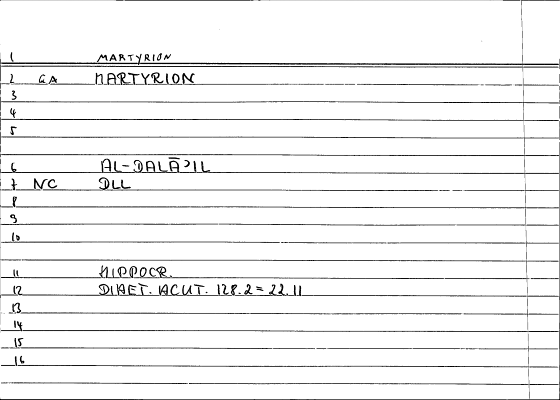 1 MARTYRION
2 GA MARTYRION
3
4
5
6 AL-DALĀʾIL
7 NC DLL
8
9
10
11 HIPPOCR.
12 DIAET. ACUT. 128.2 = 22.11
13
14
15
16